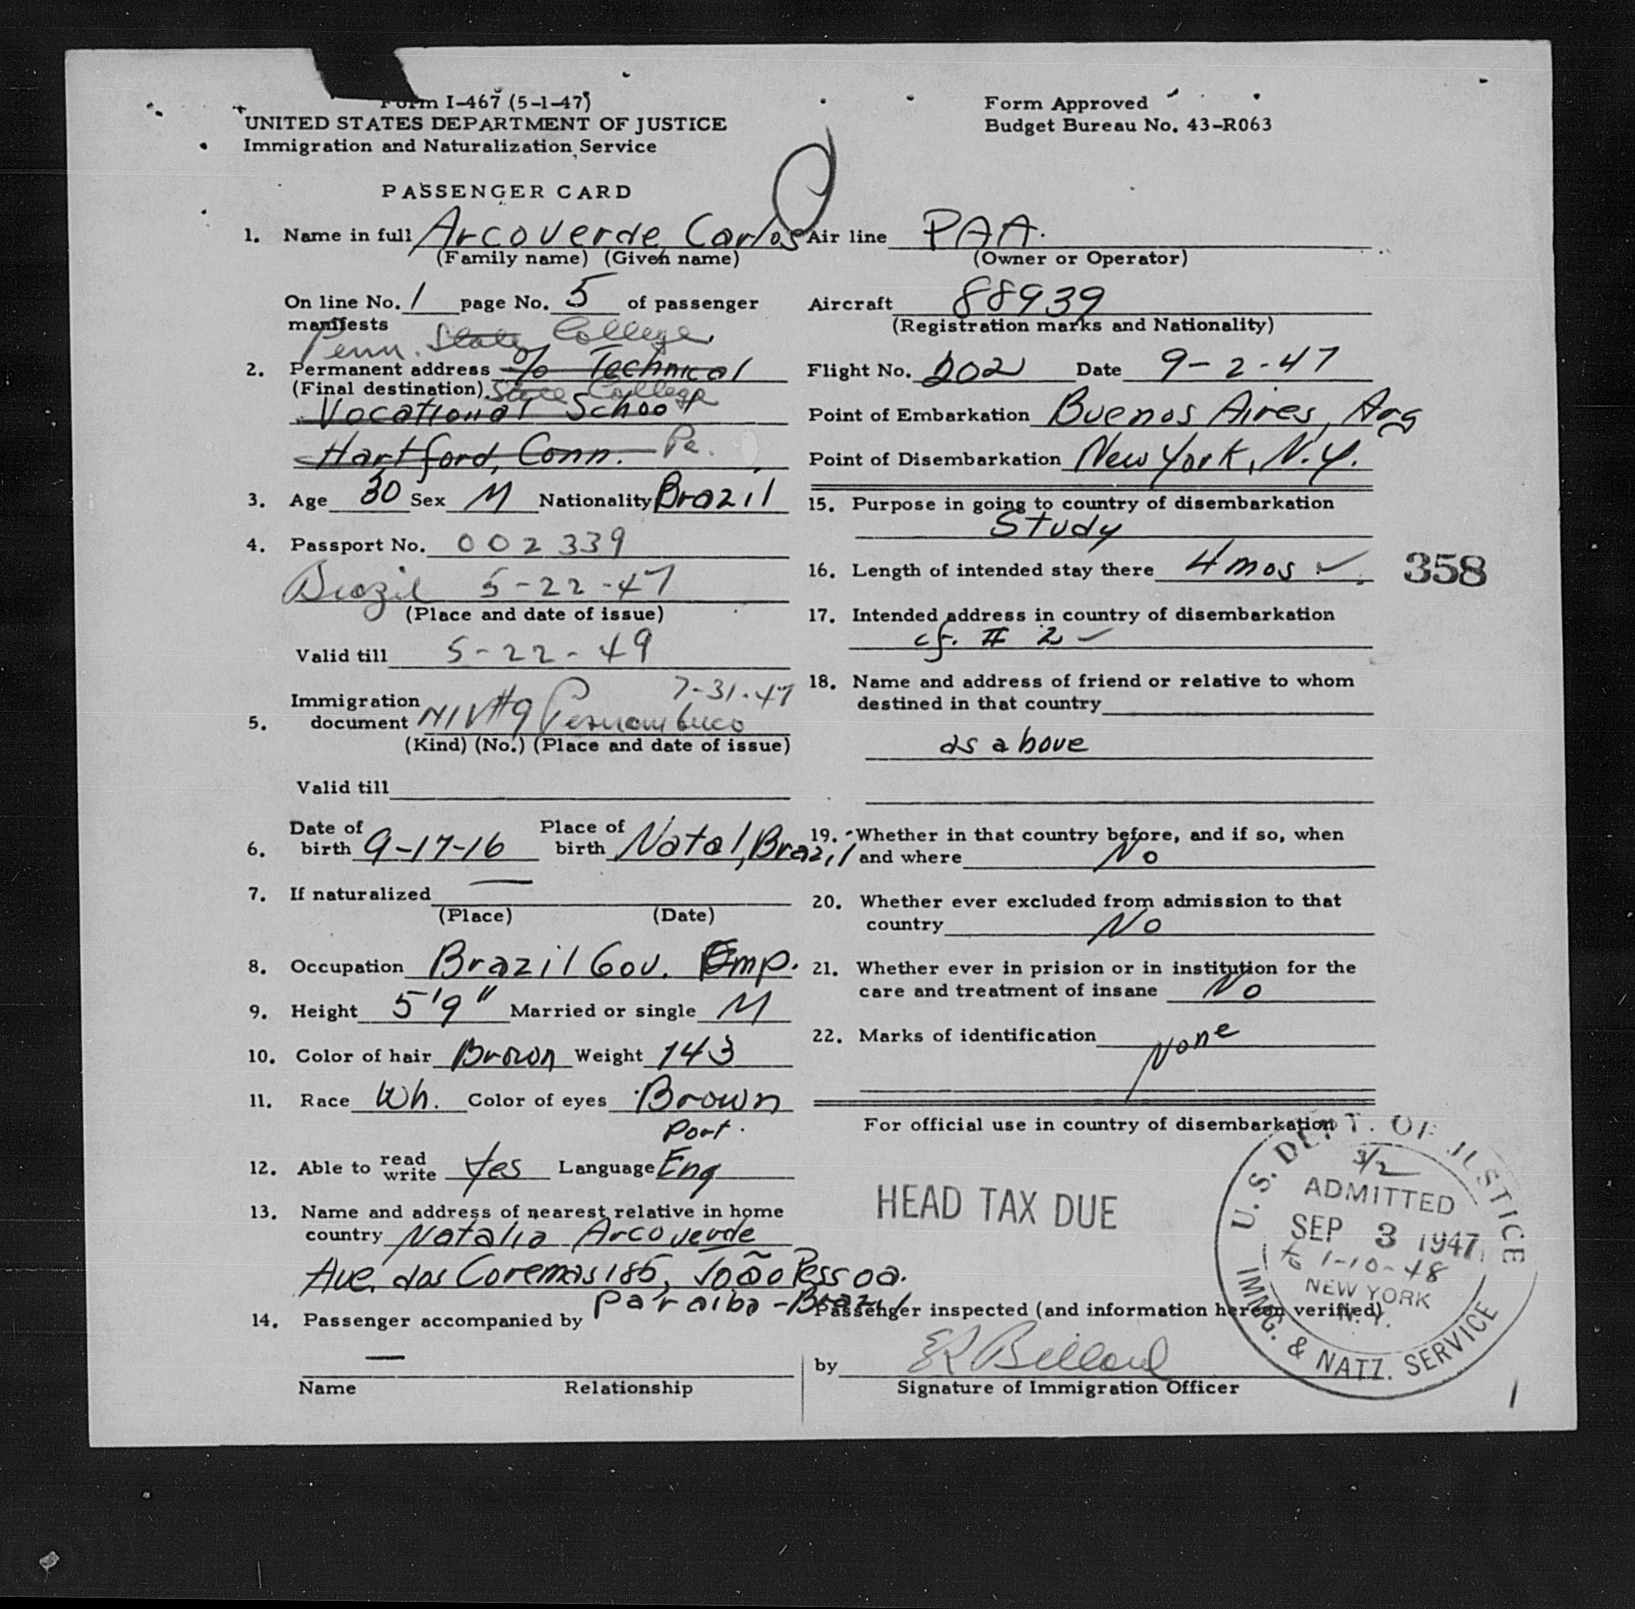 Form I-467 (5-1-47)
UNITED STATES DEPARTMENT OF JUSTICE
Immigration and Naturalization Service
Form Approved
Budget Bureau No. 43-R063
PASSENGER CARD
1. Name in full Arcoverde, Carlos
(Family name) (Given name)
On line No. 1 page No. 5 of passenger
manifests
Penn. State College
2. Permanent address c/o Technical
(Final destination) State College
Vocational School
Hartford, Conn. Pa.
3. Age 30 Sex M Nationality Brazil
4. Passport No. 002339
Brazil 5-22-47
(Place and date of issue)
Valid till 5-22-49
7-31-47
5. Immigration document NIV#9 Pernambuco
(Kind) (No.) (Place and date of issue)
Valid till
6. Date of birth 9-17-16 Place of birth Natal, Brazil
7. If naturalized —
(Place) (Date)
8. Occupation Brazil Gov. Emp.
9. Height 5'9" Married or single M
10. Color of hair Brown Weight 143
11. Race Wh. Color of eyes Brown
Port.
12. Able to read write Yes Language Eng
13. Name and address of nearest relative in home
country Natalia Arcoverde
Ave. das Coremas 185, João Pessoa.
Paraiba - Brazil
14. Passenger accompanied by
—
Name Relationship
Air line PAA.
(Owner or Operator)
Aircraft 88939
(Registration marks and Nationality)
Flight No. 202 Date 9-2-47
Point of Embarkation Buenos Aires, Arg
Point of Disembarkation New York, N.Y.
15. Purpose in going to country of disembarkation
Study
16. Length of intended stay there 4 mos ✓
358
17. Intended address in country of disembarkation
cf. # 2 ✓
18. Name and address of friend or relative to whom
destined in that country
as above
19. Whether in that country before, and if so, when
and where No
20. Whether ever excluded from admission to that
country No
21. Whether ever in prision or in institution for the
care and treatment of insane No
22. Marks of identification None
For official use in country of disembarkation
HEAD TAX DUE
U.S. DEPT. OF JUSTICE
3/2
ADMITTED
SEP 3 1947
to 1-10-48
NEW YORK
N.Y.
IMMG. & NATZ. SERVICE
Passenger inspected (and information hereon verified)
by
Signature of Immigration Officer